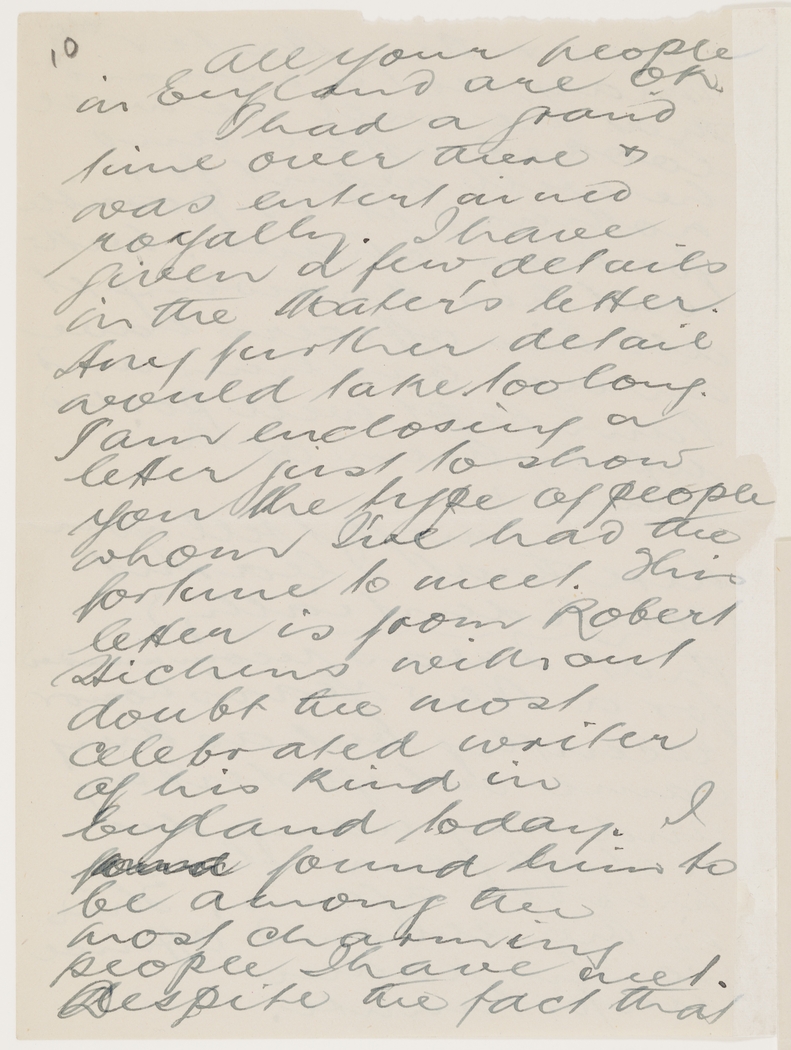 10
All your people
in England are OK
I had a grand
time over there &
was entertained
royally. I have
given a few details
in the Mater's letter.
Any further detail
would take too long.
I am enclosing a
letter just to show
you the type of people
whom I've had the
fortune to meet. This
letter is from Robert
Hichens without
doubt the most
celebrated writer
of his kind in
England today. I
found found him to
be among the
most charming
people I have met.
Despite the fact that